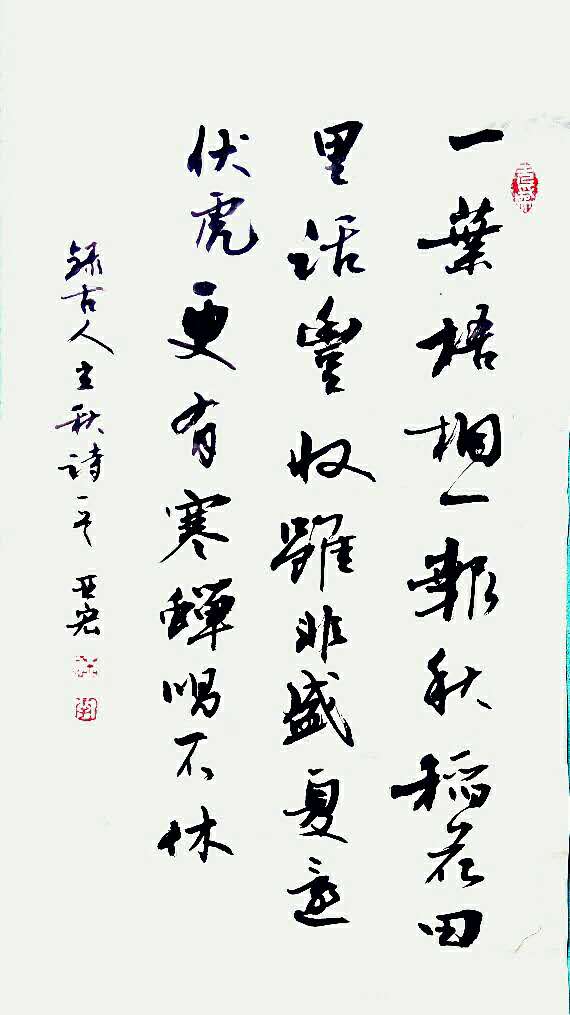 一葉梧桐一報秋稻花田
里話豐收雖非盛夏還
伏虎更有寒蟬唱不休
録古人立秋詩一首 亚宏